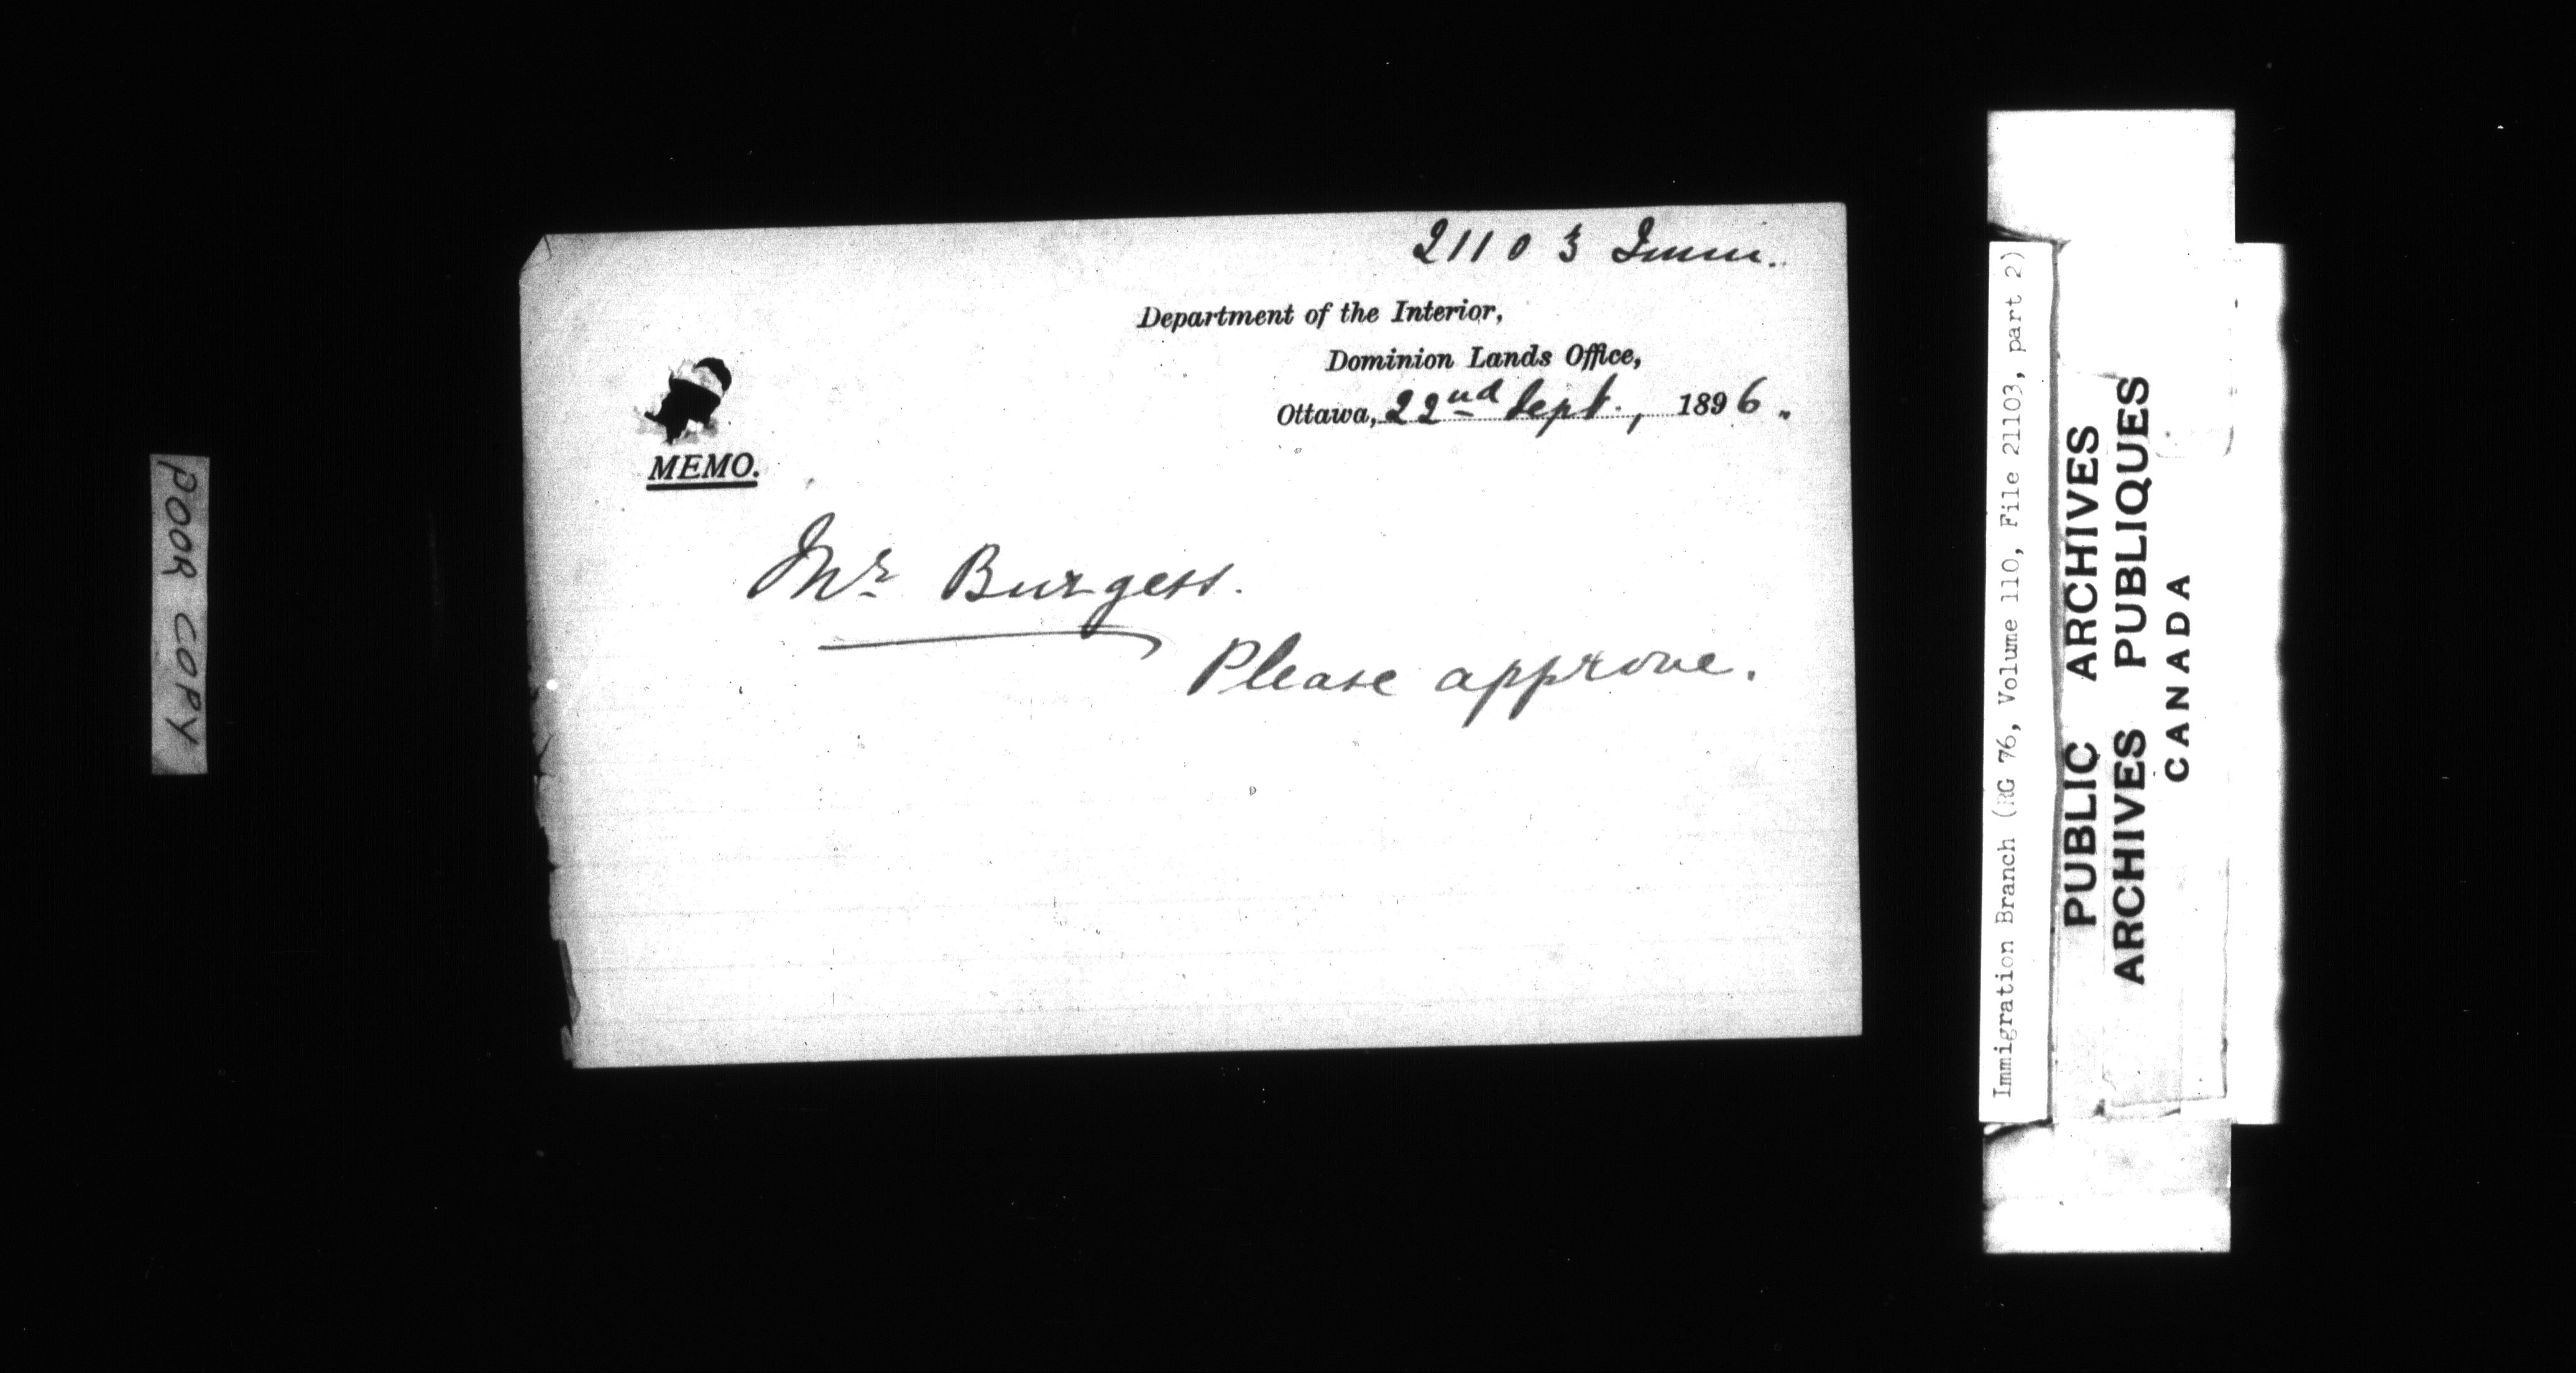 POOR COPY
21103 Imm.
Department of the Interior,
Dominion Lands Office,
Ottawa, 22nd Sept., 1896.
MEMO.
Mr Burgess.
Please approve.
Immigration Branch (RG 76, Volume 110, File 21103, part 2)
PUBLIC ARCHIVES
ARCHIVES PUBLIQUES
CANADA